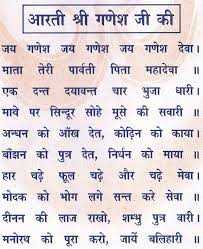 आरती श्री गणेश जी की
जय गणेश जय गणेश जय गणेश देवा।
माता तेरी पार्वती पिता महादेवा ॥
एक दन्त दयावन्त चार भुजा धारी।
माथे पर सिन्दूर सोहे मूसे की सवारी ॥
अन्धन को आँख देत, कोढ़िन को काया।
बाँझन को पुत्र देत, निर्धन को माया ॥
हार चढ़े फूल चढ़े और चढ़े मेवा।
मोदक को भोग लगे सन्त करे सेवा ॥
दीनन की लाज राखो, शम्भु पुत्र वारी।
मनोरथ को पूरा करो, जायें बलिहारी ॥